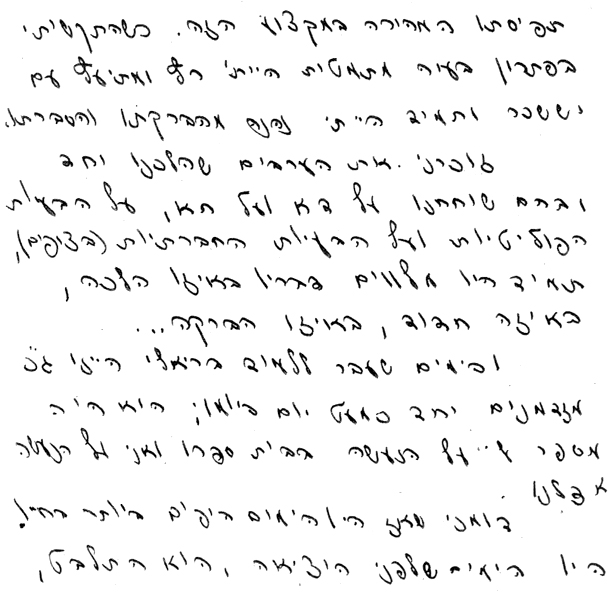 תפיסתו המהירה במקצוע הזה. כשהתקשיתי
בפתרון בעיה מתמטית הייתי רץ ומתיעץ עם
יששכר ותמיד הייתי נהנה מהברקתו והסברתו.
זוכרני את הערבים שהלכנו יחד
ובהם שוחחנו על דא ועל הא, על הבעיות
הפוליטיות ועל הבעיות החברתיות (בצופים),
תמיד היו מלווים דבריו באיזו הלכה,
באיזה חדוד, באיזו הברקה...
ובימים שעבר ללמוד בריאלי היינו ג"כ
מזדמנים יחד כמעט יום ביומו; הוא היה
מספר לי על הנעשה בבית ספרו ואני על הנעשה
אצלנו
דומני שאז היו הימים היפים ביותר בחיי!
היו הימים שלפני היציאה, הוא התלבט,